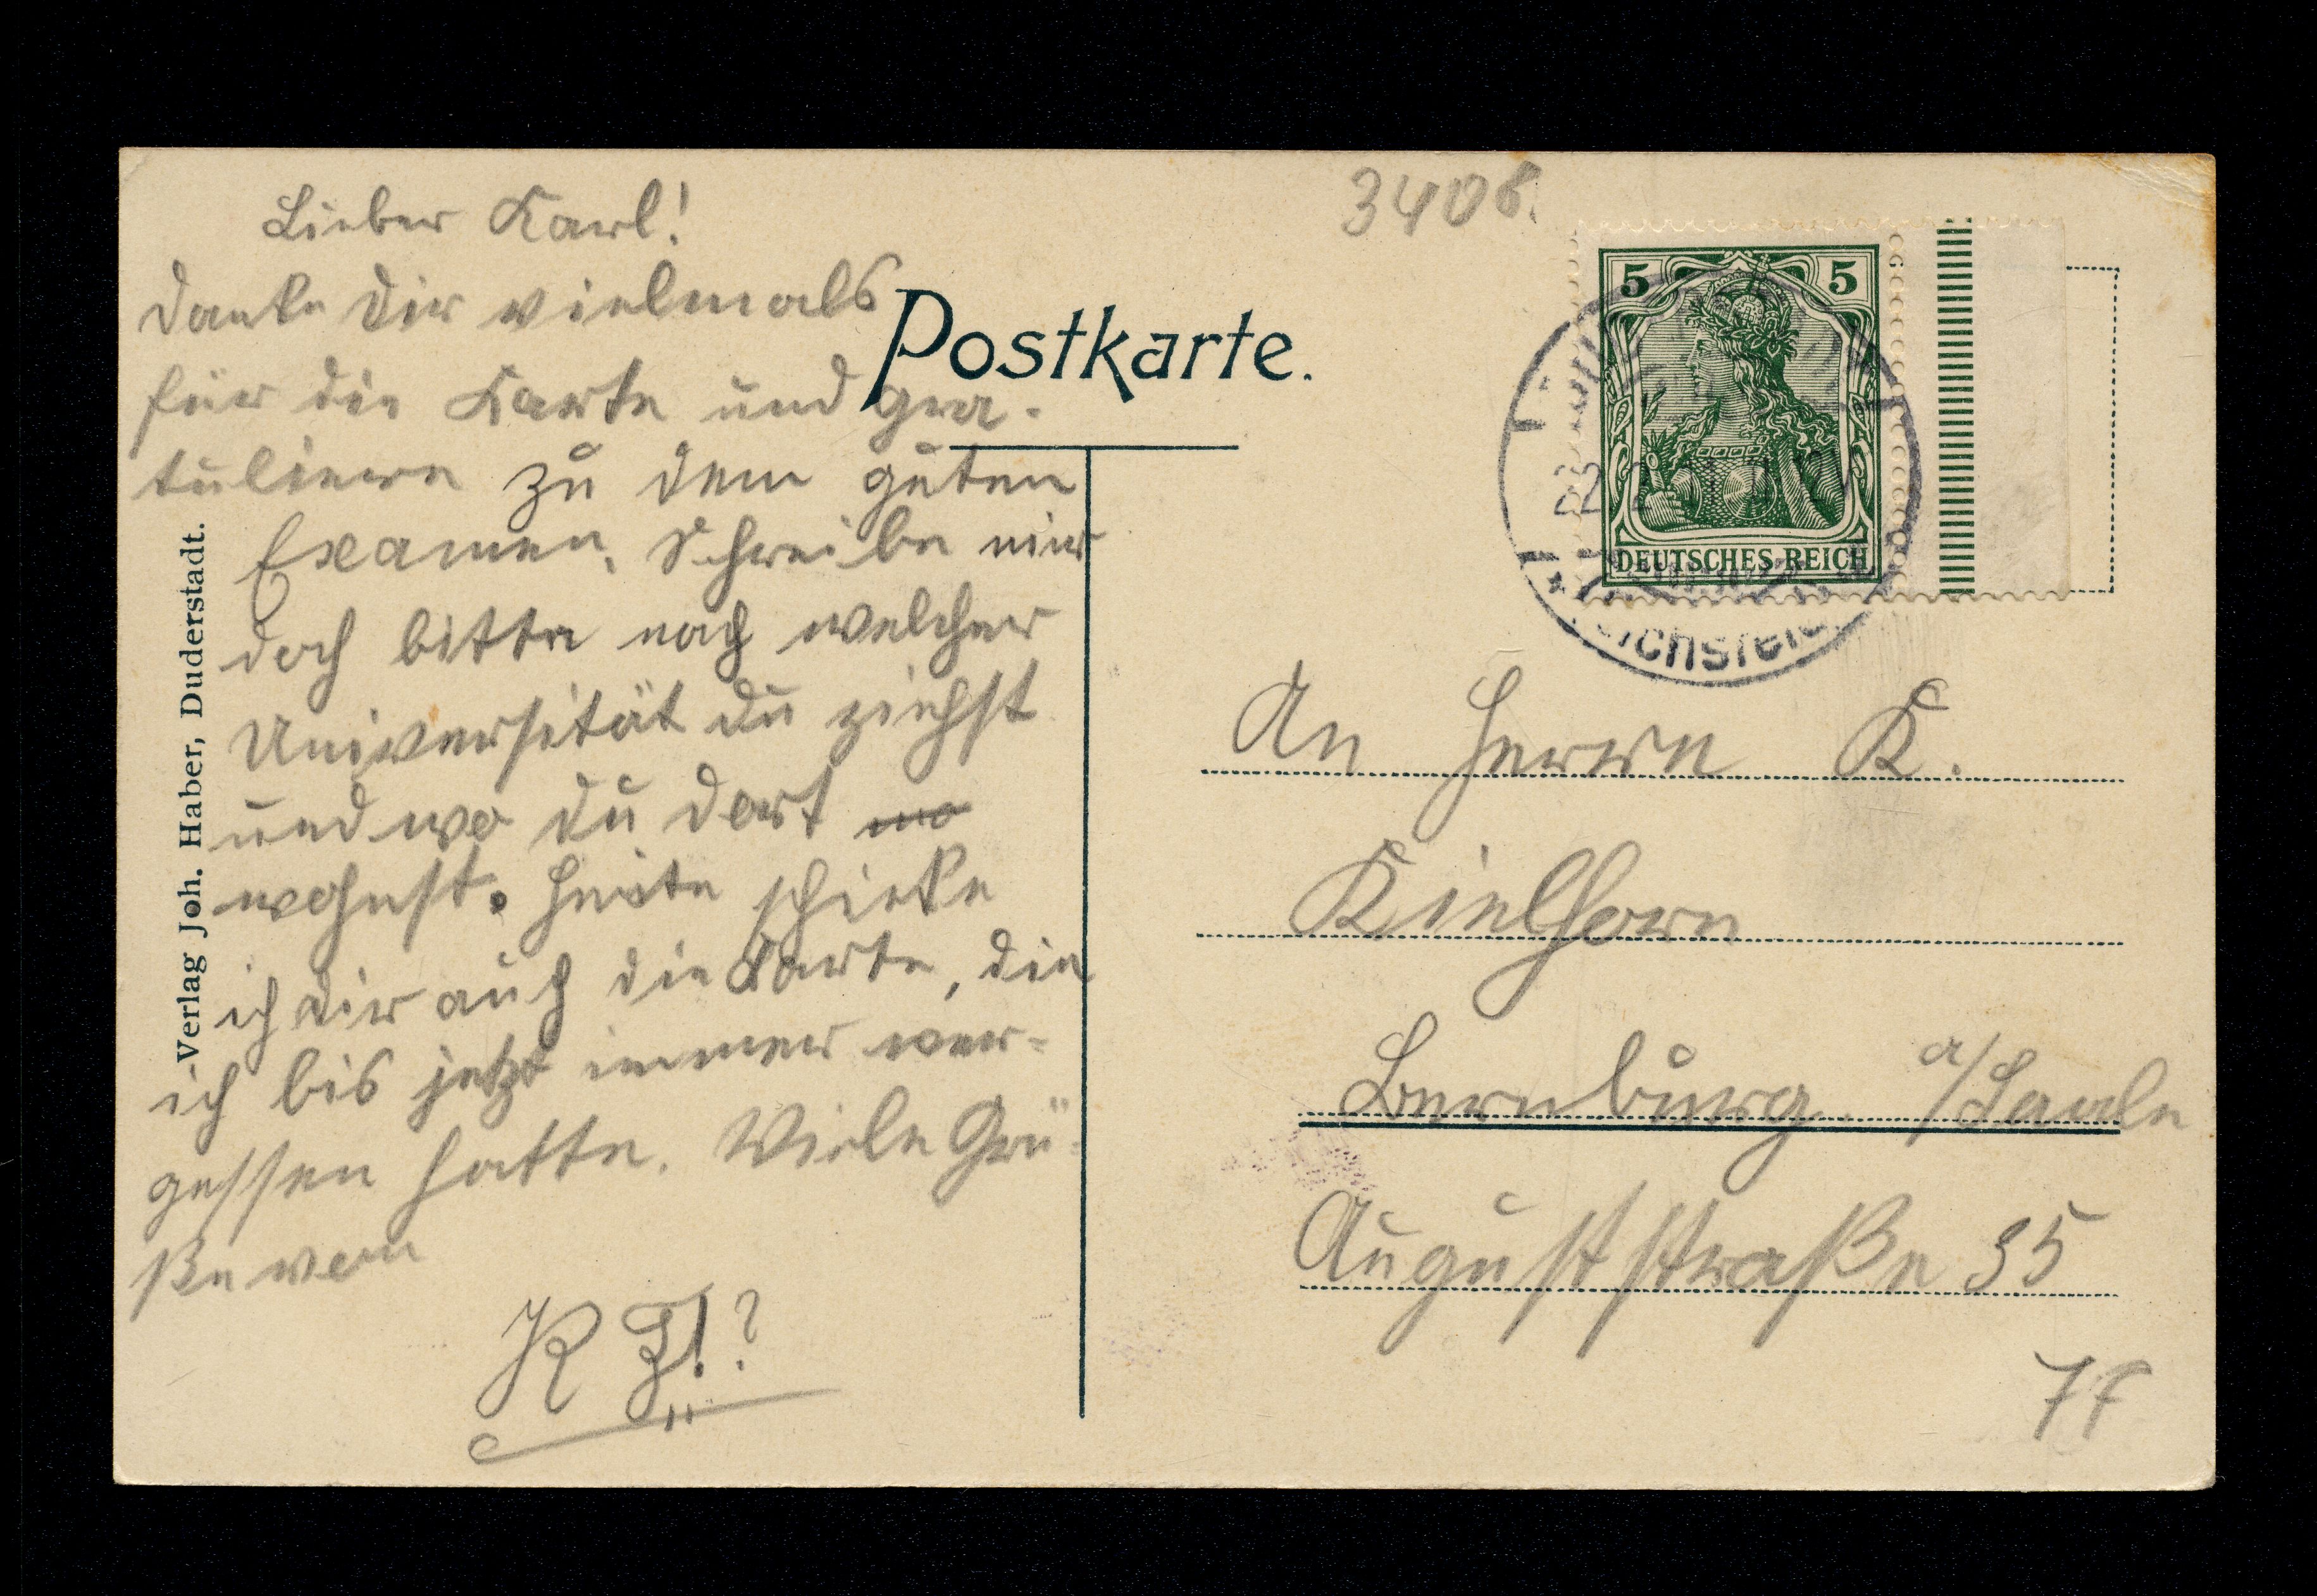 3408.
Lieber Karl!
Danke Dir vielmals
für die Karte und gra-
tuliere zu dem guten
Examen. Schreibe mir
doch bitte nach welcher
Universität du ziehst
und wo du dort wo
wohnst. Heute schicke
ich dir auch die Karte, die
ich bis jetzt immer ver-
gessen hatte. Viele Grü-
ße von
Postkarte.
5 5
DEUTSCHES REICH
An Herrn K.
Kielhorn
Bernburg a/Saale
Auguststraße 35
Verlag Joh. Haber, Duderstadt.